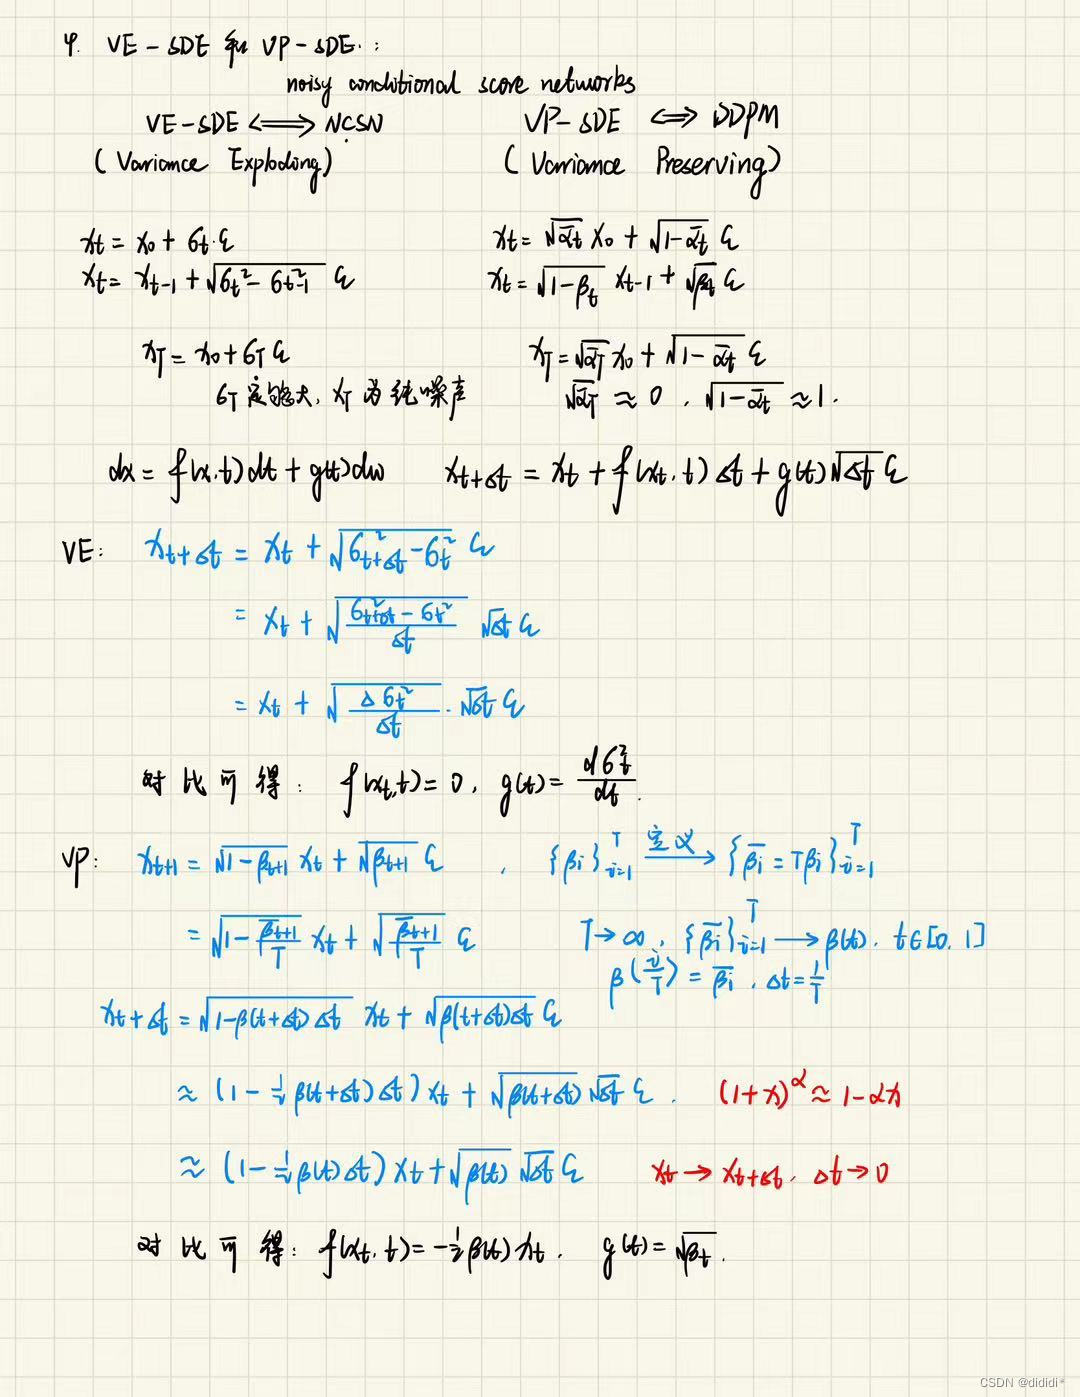 4. VE-SDE 和 VP-SDE.:
noisy conditional score networks
VE-SDE ⟺ NCSN VP-SDE ⟺ DDPM
(Variance Exploding) (Variance Preserving)
x_t = x_0 + σ_t·ε x_t = √(ᾱ_t) x_0 + √(1-ᾱ_t) ε
x_t = x_{t-1} + √(σ_t² - σ_{t-1}²) ε x_t = √(1-β_t) x_{t-1} + √(β_t) ε
x_T = x_0 + σ_T ε x_T = √(ᾱ_T) x_0 + √(1-ᾱ_t) ε
σ_T 足够大, x_T 为纯噪声 √(ᾱ_T) ≈ 0 , √(1-ᾱ_t) ≈ 1.
dx = f(x,t)dt + g(t)dw x_{t+Δt} = x_t + f(x_t,t)Δt + g(t)√(Δt) ε
VE: x_{t+Δt} = x_t + √(σ²_{t+Δt} - σ_t²) ε
= x_t + √((σ²_{t+Δt} - σ_t²)/Δt) √(Δt) ε
= x_t + √(Δσ_t²/Δt) · √(Δt) ε
对比可得: f(x_t,t) = 0, g(t) = dσ_t²/dt.
VP: x_{t+1} = √(1-β_{t+1}) x_t + √(β_{t+1}) ε , {β_i}_{i=1}^T 定义→ {β̄_i = Tβ_i}_{i=1}^T
= √(1 - β̄_{t+1}/T) x_t + √(β̄_{t+1}/T) ε T→∞, {β̄_i}_{i=1}^T → β(t). t∈[0,1]
β(i/T) = β̄_i , Δt = 1/T
x_{t+Δt} = √(1-β(t+Δt)Δt) x_t + √(β(t+Δt)Δt) ε
≈ (1 - ½β(t+Δt)Δt) x_t + √(β(t+Δt)) √(Δt) ε . (1+x)^α ≈ 1-αx
≈ (1 - ½β(t)Δt) x_t + √(β(t)) √(Δt) ε x_t → x_{t+Δt}. Δt→0
对比可得: f(x_t,t) = -½β(t)x_t. g(t) = √(β_t).
CSDN @dididi*